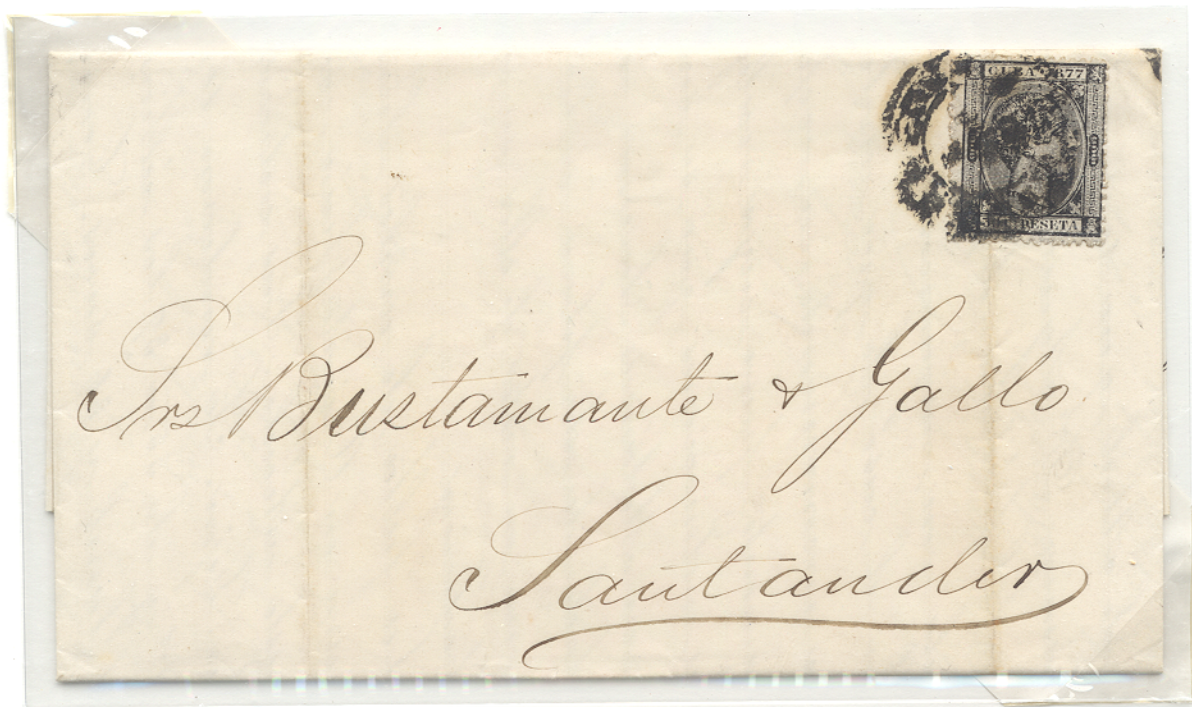 CUBA 1877
PESETA
Srs Bustamante & Gallo
Santander